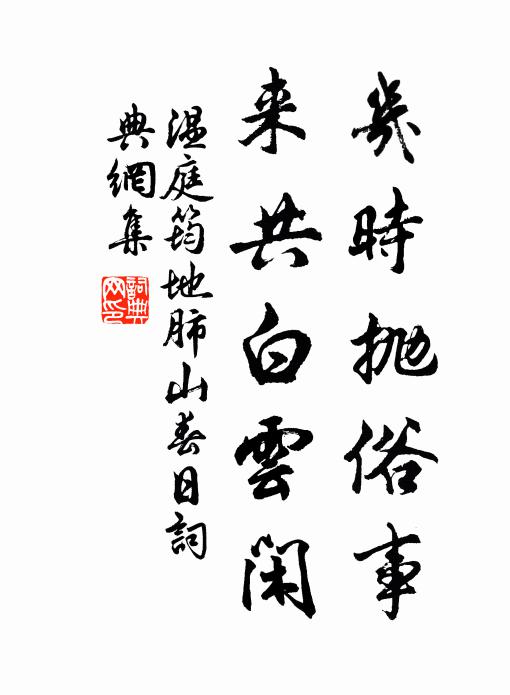 幾時抛俗事
来共白雲閑
温庭筠地肺山春日詞
典網集
詞典网印